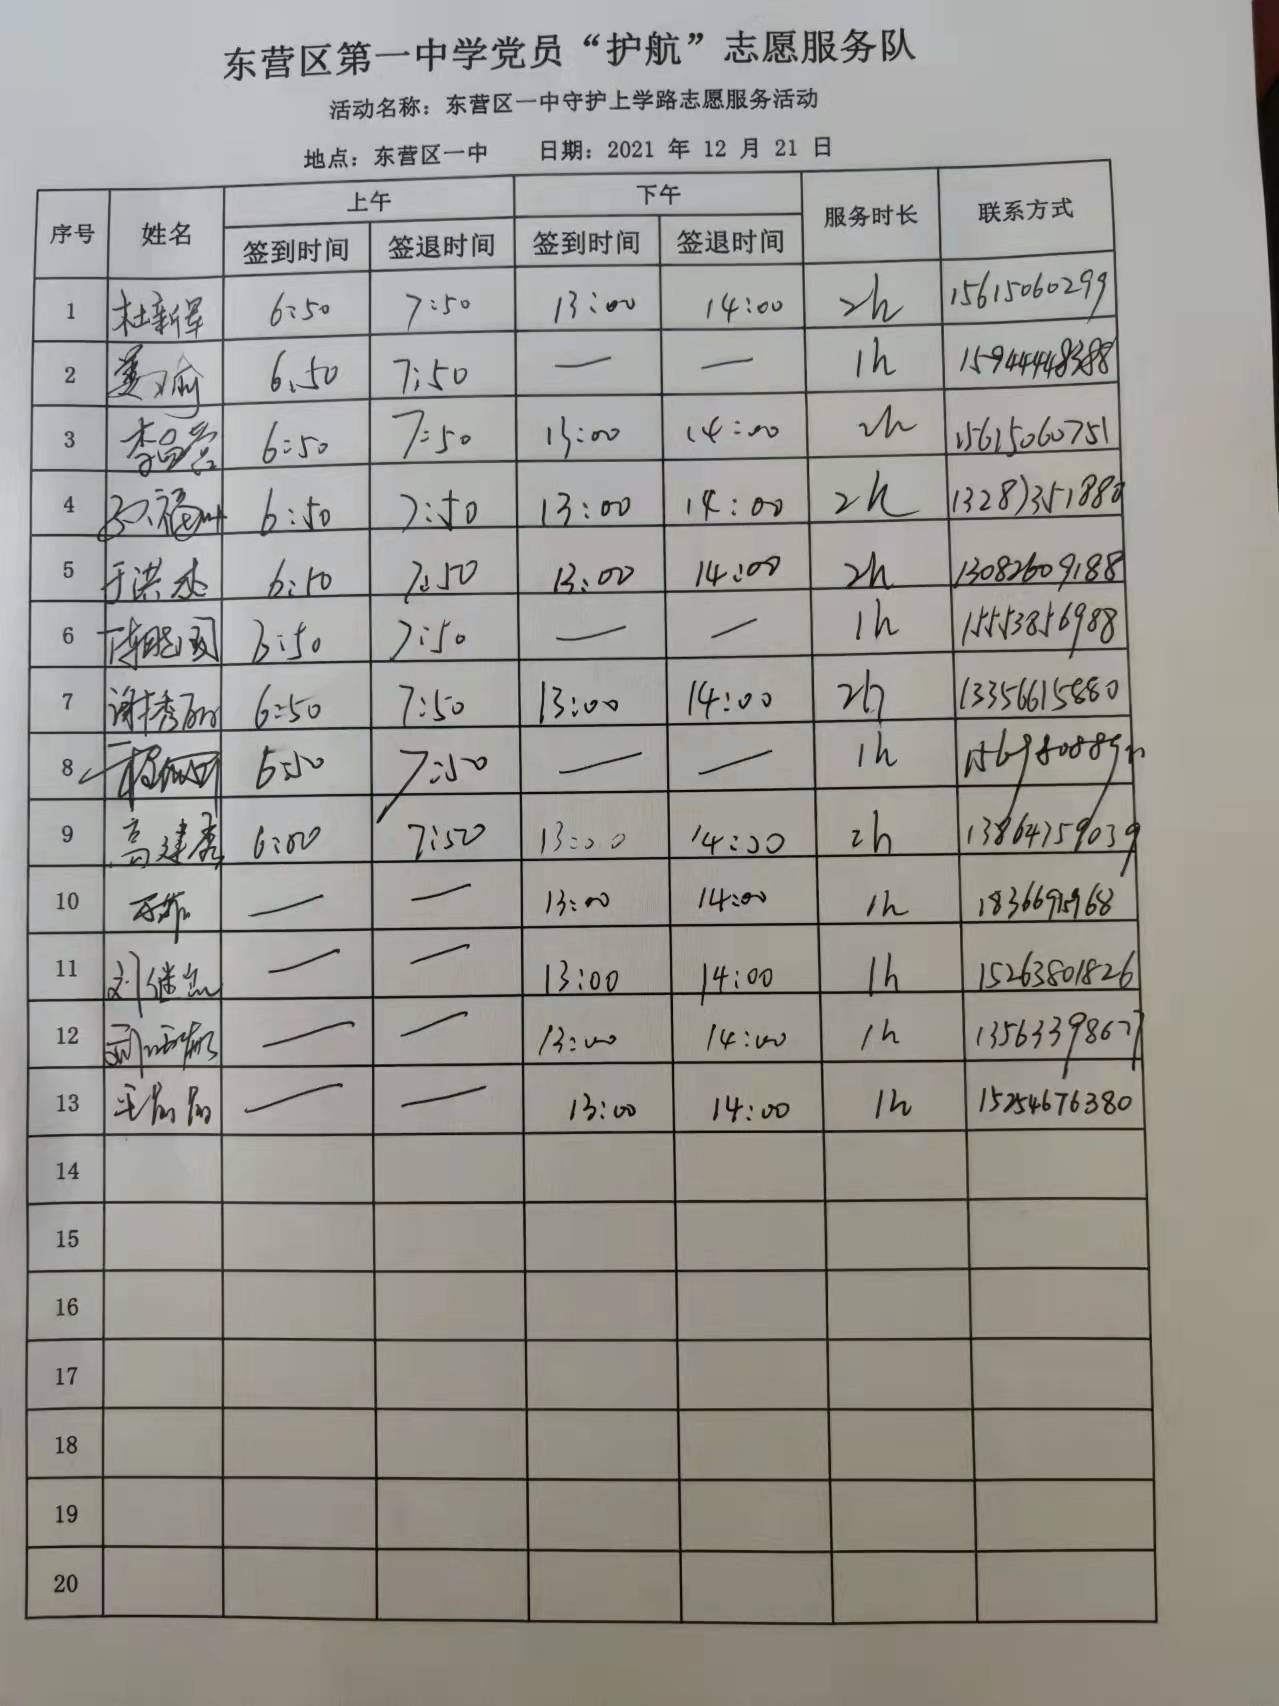 东营区第一中学党员“护航”志愿服务队
活动名称：东营区一中守护上学路志愿服务活动
地点：东营区一中 日期：2021 年 12 月 21 日
序号 姓名 上午 下午 服务时长 联系方式
签到时间 签退时间 签到时间 签退时间
1 杜新军 6:50 7:50 13:00 14:00 2h 15615060299
2 6:50 7:50 — — 1h
3 李 6:50 7:50 13:00 14:00 2h 15615060751
4 6:50 7:50 13:00 14:00 2h
5 于洪 6:50 7:50 13:00 14:00 2h 13082609188
6 7:50 — — 1h 15553856988
7 谢秀丽 6:50 7:50 13:00 14:00 2h 13356615880
8 6:50 7:50 — — 1h
9 高建秀 7:50 13:00 14:00 2h 13864759039
10 — — 13:00 14:00 1h
11 刘继 — — 13:00 14:00 1h 15263801826
12 — — 13:00 14:00 1h 13563398677
13 — — 13:00 14:00 1h 15254676380
14
15
16
17
18
19
20